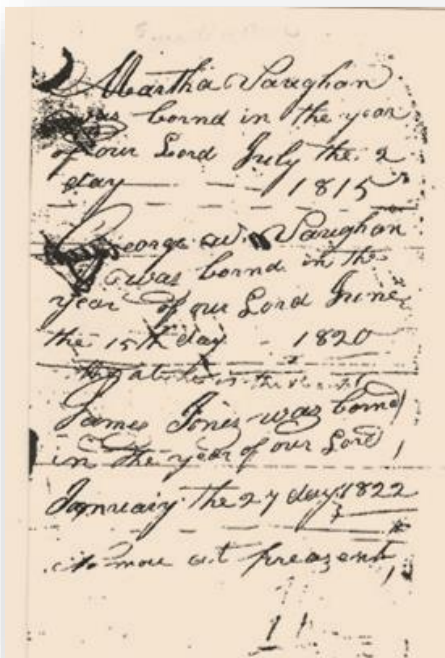 Martha Vaughan
was bornd in the year
of our Lord July the 2
day 1815
George W. Vaughan
was bornd in the
year of our Lord June
the 15th day - 1820
James Jones was bornd
in the year of our Lord
January the 27 day 1822
no more at preasent